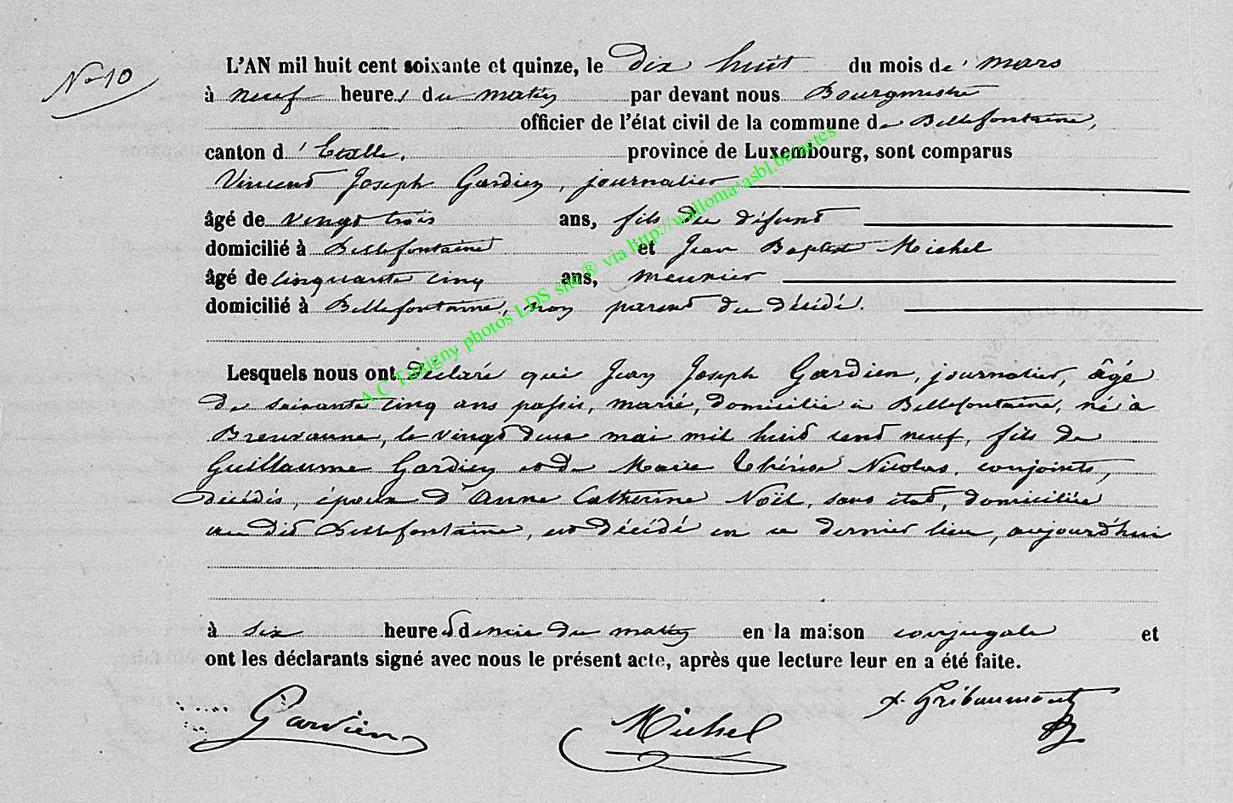 No 10
L'AN mil huit cent soixante et quinze, le dix huit du mois de mars
à neuf heures du matin par devant nous Bourgmestre
officier de l'état civil de la commune de Bellefontaine,
canton d'Etalle. province de Luxembourg, sont comparus
Vincent Joseph Gardien, journalier
âgé de vingt trois ans, fils du défunt
domicilié à Bellefontaine et Jean Baptiste Michel
âgé de cinquante cinq ans, meunier
domicilié à Bellefontaine, non parent du décédé.
Lesquels nous ont déclaré que Jean Joseph Gardien, journalier, âgé
de soixante cinq ans passés, marié, domicilié à Bellefontaine, né à
Breuvanne, le vingt deux mai mil huit cent neuf, fils de
Guillaume Gardien et de Marie Thérèse Nicolas, conjoints,
décédés, époux d'Anne Catherine Noël, sans état, domiciliée
au dit Bellefontaine, est décédé en ce dernier lieu, aujourd'hui
à six heures demie du matin en la maison conjugale et
ont les déclarants signé avec nous le présent acte, après que lecture leur en a été faite.
Gardien Michel Gribaumont
A.C. Tintigny photos LDS site® via http://wallonia-asbl.be/actes